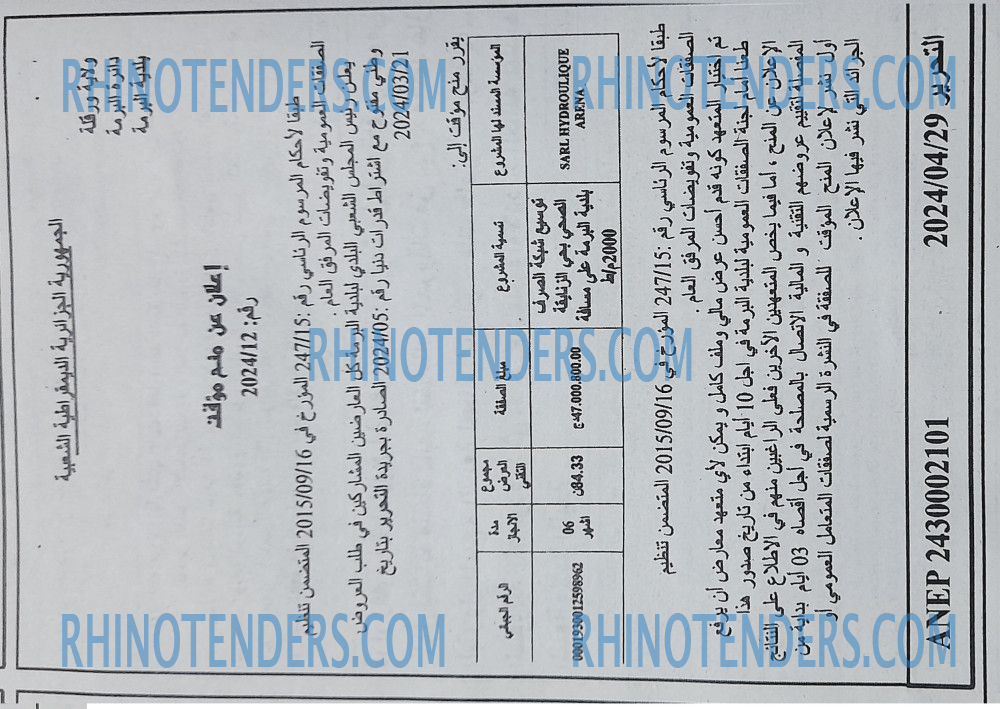 الجمهورية الجزائرية الديمقراطية الشعبية
ولاية ورقلة
دائرة البرمة
بلدية البرمة
إعلان عن منح مؤقت
رقم: 2024/12
طبقا لأحكام المرسوم الرئاسي رقم :247/15 المؤرخ في 2015/09/16 المتضمن تنظيم
الصفقات العمومية وتفويضات المرفق العام .
يعلن رئيس المجلس الشعبي البلدي لبلدية البرمة كل العارضين المشاركين في طلب العروض
وطني مفتوح مع اشتراط قدرات دنيا رقم :2024/05 الصادرة بجريدة التحرير بتاريخ
2024/03/21
يقرر منح مؤقت إلى:
المؤسسة المسند لها المشروع
تسمية المشروع
مبلغ الصفقة
مجموع العرض التقني
مدة الانجاز
الرقم الجبائي
SARL HYDROULIQUE
ARENA
توسيع شبكة الصرف
الصحي بحي الزنايقة
بلدية البرمة على مسافة
2000م/ط
47.000.800.00دج
84.33ن
06
اشهر
0001930012598962
طبقا لأحكام المرسوم الرئاسي رقم :247/15 المؤرخ في 2015/09/16 المتضمن تنظيم
الصفقات العمومية وتفويضات المرفق العام
تم اختيار المتعهد كونه قدم احسن عرض مالي وملف كامل و يمكن لأي متعهد معارض ان يرفع
طعنا أمام لجنة الصفقات العمومية لبلدية البرمة في اجل 10 ايام ابتداء من تاريخ صدور هذا
الإعلان عن المنح ، اما فيما يخص المتعهدين الأخرين فعلى الراغبين منهم في الاطلاع على النتائج
المفصلة لتقييم عروضهم التقنية و المالية الاتصال بالمصلحة في اجل اقصاه 03 ايام بداية من
أول نشر لإعلان المنح المؤقت للصفقة في النشرة الرسمية لصفقات المتعامل العمومي او
الجرائد التي نشر فيها الإعلان .
ANEP 2430002101 2024/04/29 التحرير
RHINOTENDERS.COM
RHINOTENDERS.COM
RHINOTENDERS.COM
RHINOTENDERS.COM
RHINOTENDERS.COM
RHINOTENDERS.COM
RHINOTENDERS.COM
RHINOTENDERS.COM